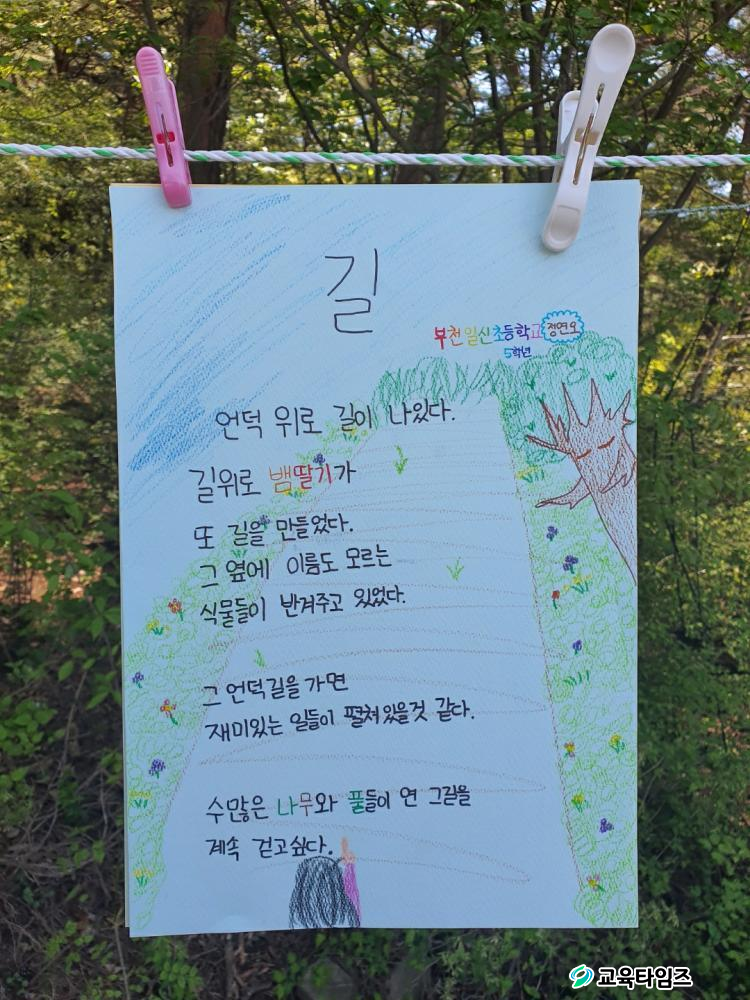 길
부천일신초등학교 정연오
5학년
언덕 위로 길이 나있다.
길위로 뱀딸기가
또 길을 만들었다.
그 옆에 이름도 모르는
식물들이 반겨주고 있었다.
그 언덕길을 가면
재미있는 일들이 펼쳐있을것 같다.
수많은 나무와 풀들이 연 그길을
계속 걷고싶다.
교육타임즈